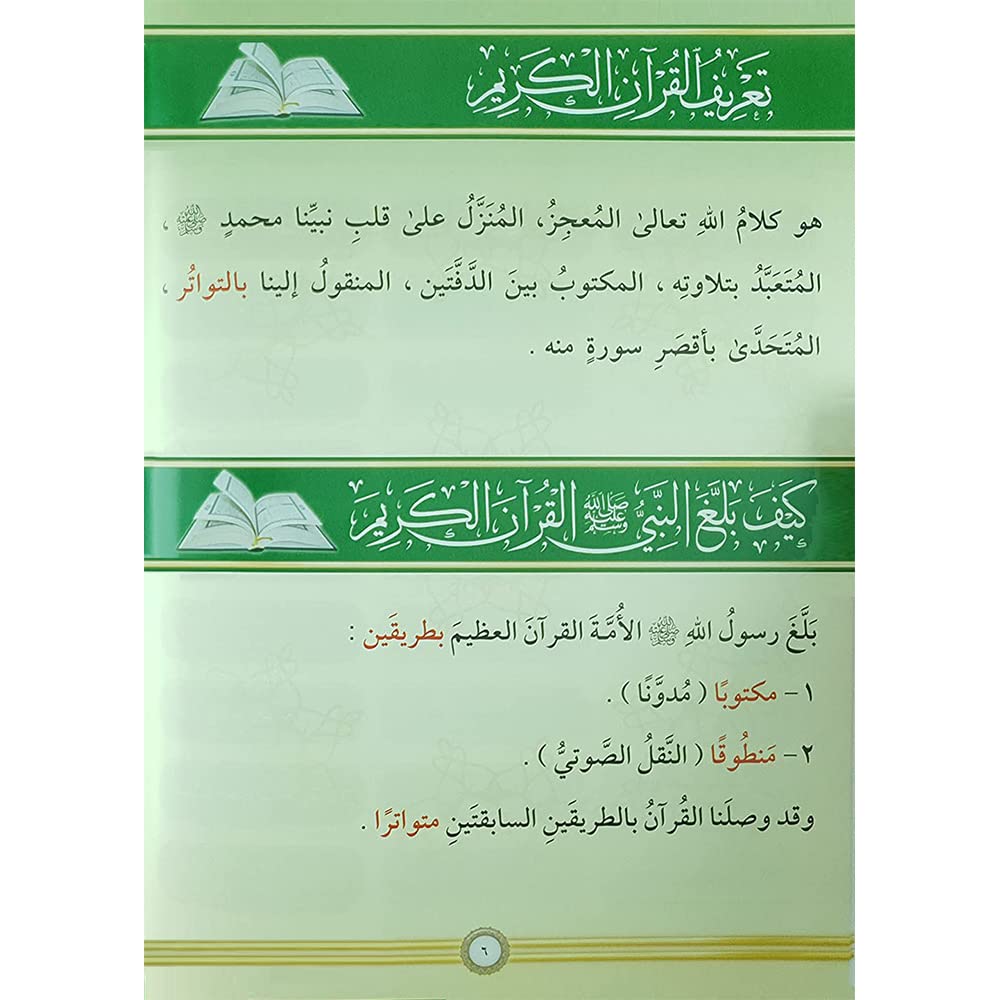 تَعْرِيفُ الْقُرْآنِ الْكَرِيمِ
هو كلامُ اللهِ تعالىٰ المُعجِزُ، المُنَزَّلُ علىٰ قلبِ نبيِّنا محمدٍ ﷺ ،
المُتَعَبَّدُ بتلاوتِه ، المكتوبُ بينَ الدَّفَّتَين ، المنقولُ إلينا بالتواتُر ،
المُتَحَدَّىٰ بأقصَرِ سورةٍ منه .
كَيْفَ بَلَّغَ النَّبِيُّ ﷺ الْقُرْآنَ الْكَرِيمَ
بَلَّغَ رسولُ اللهِ ﷺ الأُمَّةَ القرآنَ العظيمَ بطريقَين :
١- مكتوبًا ( مُدوَّنًا ) .
٢- مَنطُوقًا ( النَّقلُ الصَّوتيُّ ) .
وقد وصلَنا القُرآنُ بالطريقَينِ السابقتَينِ متواترًا .
٦